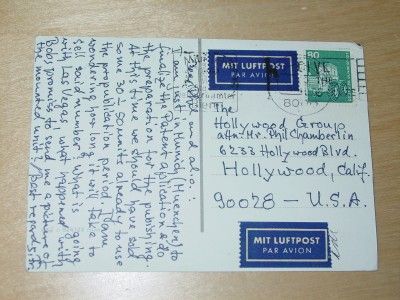 Dear Phil and alio:
I am just in Munich, Muenchen, to
finalize the Patent application & do
the preparation for the publishing.
At this time we should have said
some 30-50 units already to use
the propublication period. I am
wondering how long it will take to
sell said number, what is going
with Las Vegas, what happened with
Bob, promiss to send me a picture of
the mounted unit? Best regards
MIT LUFTPOST
PAR AVION
80
The
Hollywood Group
attn. Mr. Phil Chamberlin
6233 Hollywood Blvd.
Hollywood, Calif.
90028 - U.S.A.
MIT LUFTPOST
PAR AVION